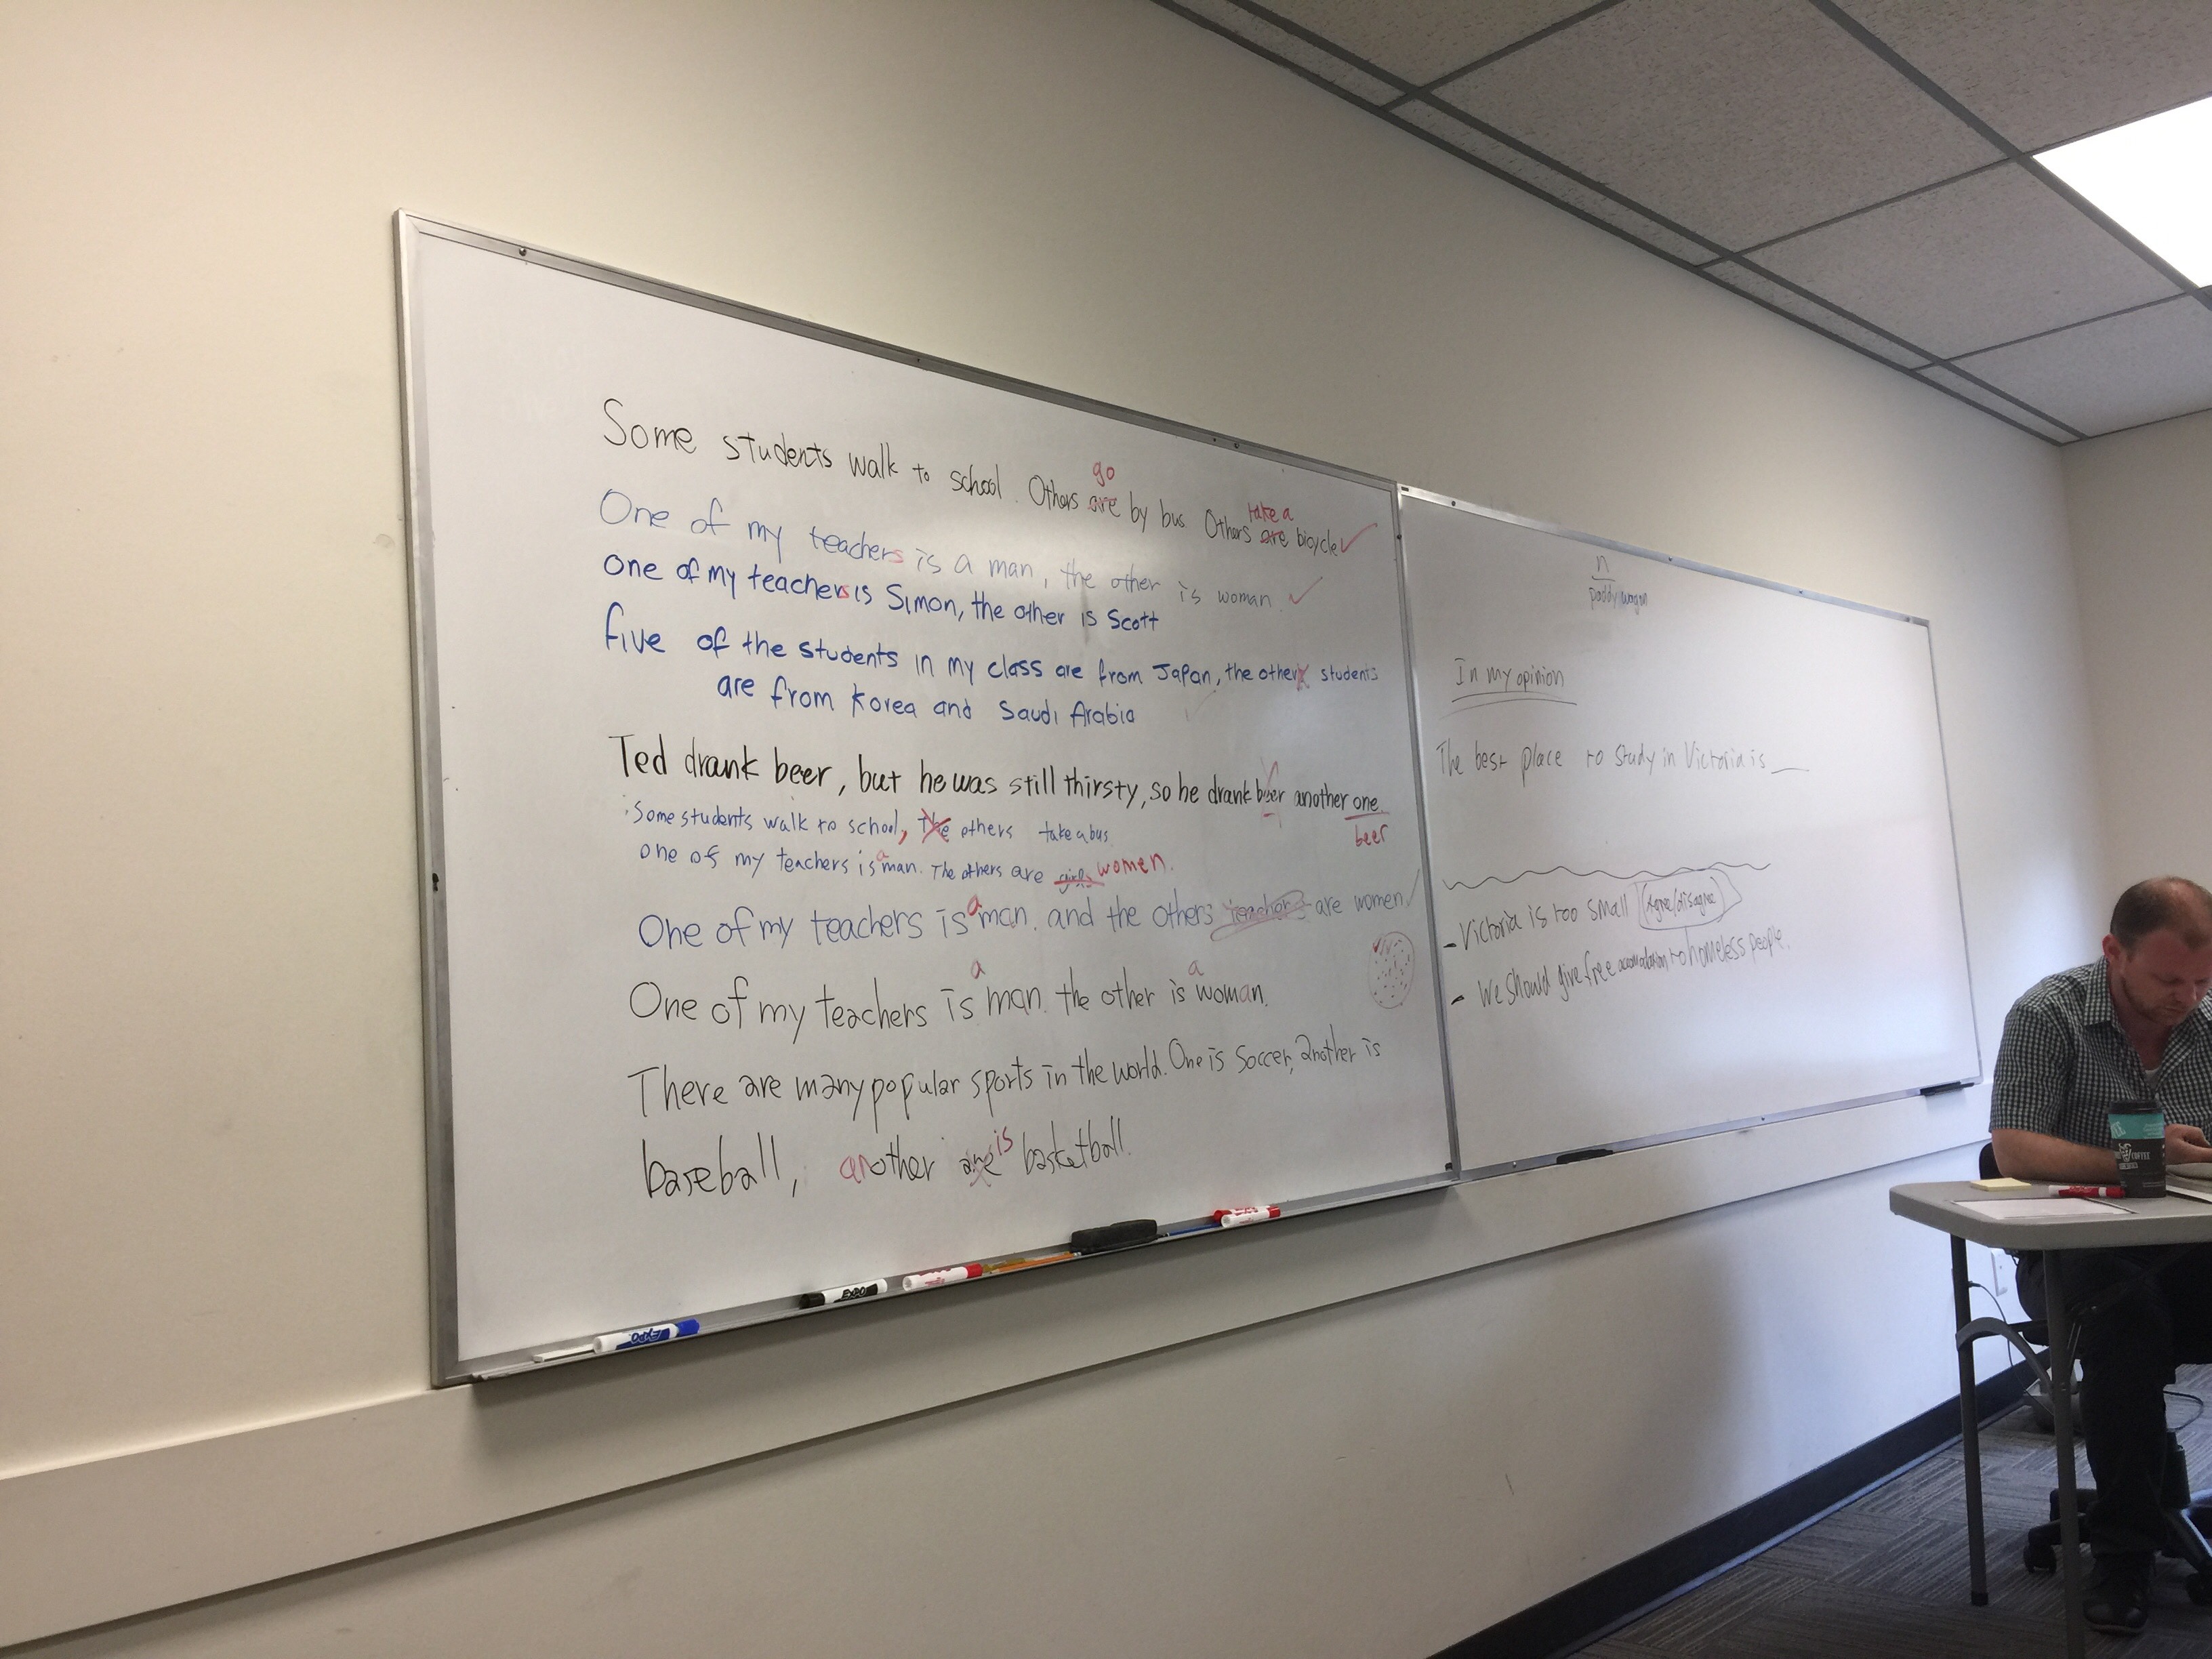 Some students walk to school. Others are by bus. Others are bicycle
go
take a
One of my teachers is a man, the other is woman.
One of my teachers is Simon, the other is Scott
five of the students in my class are from Japan, the other students
are from Korea and Saudi Arabia
Ted drank beer, but he was still thirsty, so he drank beer another one.
beer
Some students walk to school, The others take a bus
one of my teachers is a man. The others are girls women.
One of my teachers is a man. and the others teachers are women
One of my teachers is a man. the other is a woman.
There are many popular sports in the world. One is Soccer, another is
baseball, another are is basketball.
n
paddy wagon
In my opinion
The best place to study in Victoria is __
- Victoria is too small (Agree/disagree)
- We should give free accomodation to homeless people.
EXPO
EXPO
COFFEE